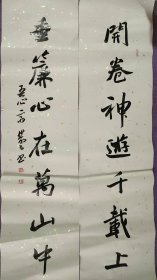 開卷神遊千載上
垂簾心在萬山中